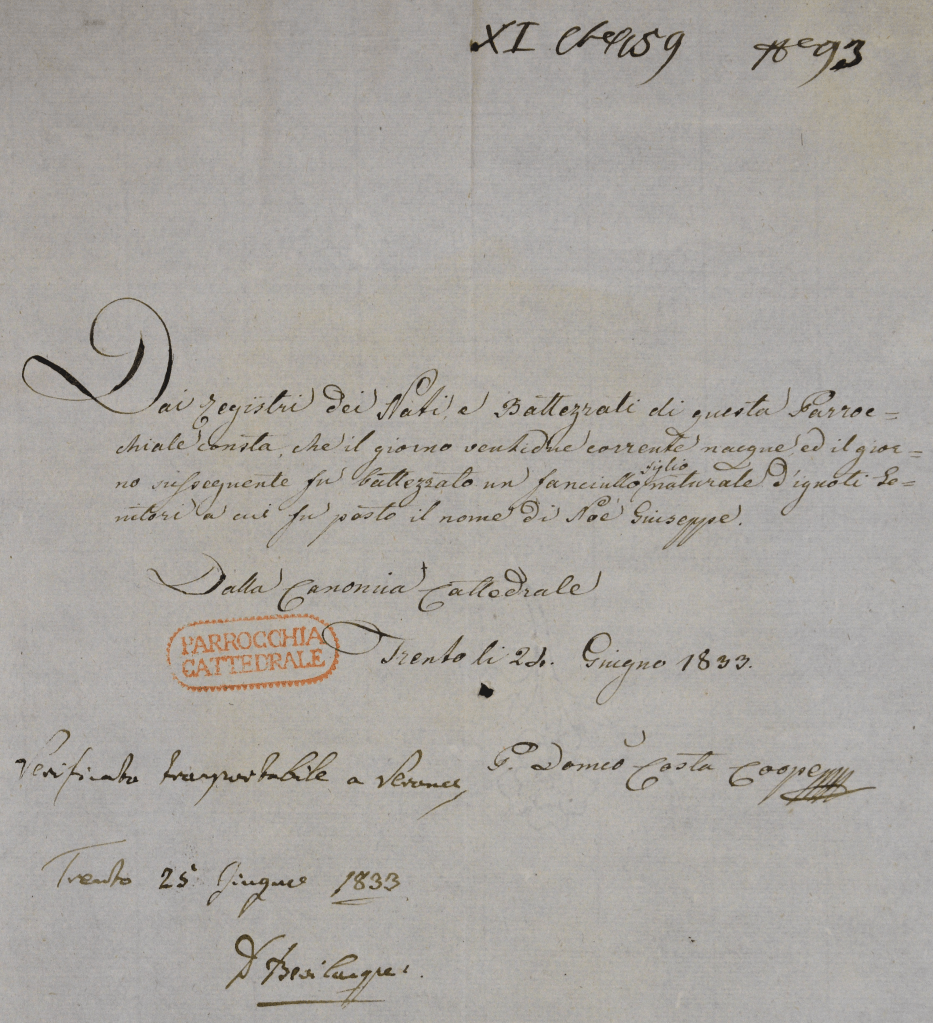 XI 1159 Nº 93
Dai registri dei Nati, e Battezzati di questa Parroc=
chiale consta, che il giorno ventidue corrente nacque, ed il gior=
no susseguente fu battezzato un fanciullo figlio naturale d'ignoti Ge=
nitori a cui fu posto il nome di Noè Giuseppe.
Dalla Canonica Cattedrale
PARROCCHIA
CATTEDRALE
Trento li 24. Giugno 1833.
P. Domco Costa Coope
Verificato trasportabile a Verona
Trento 25 Giugno 1833
Dr Bevilacqua.